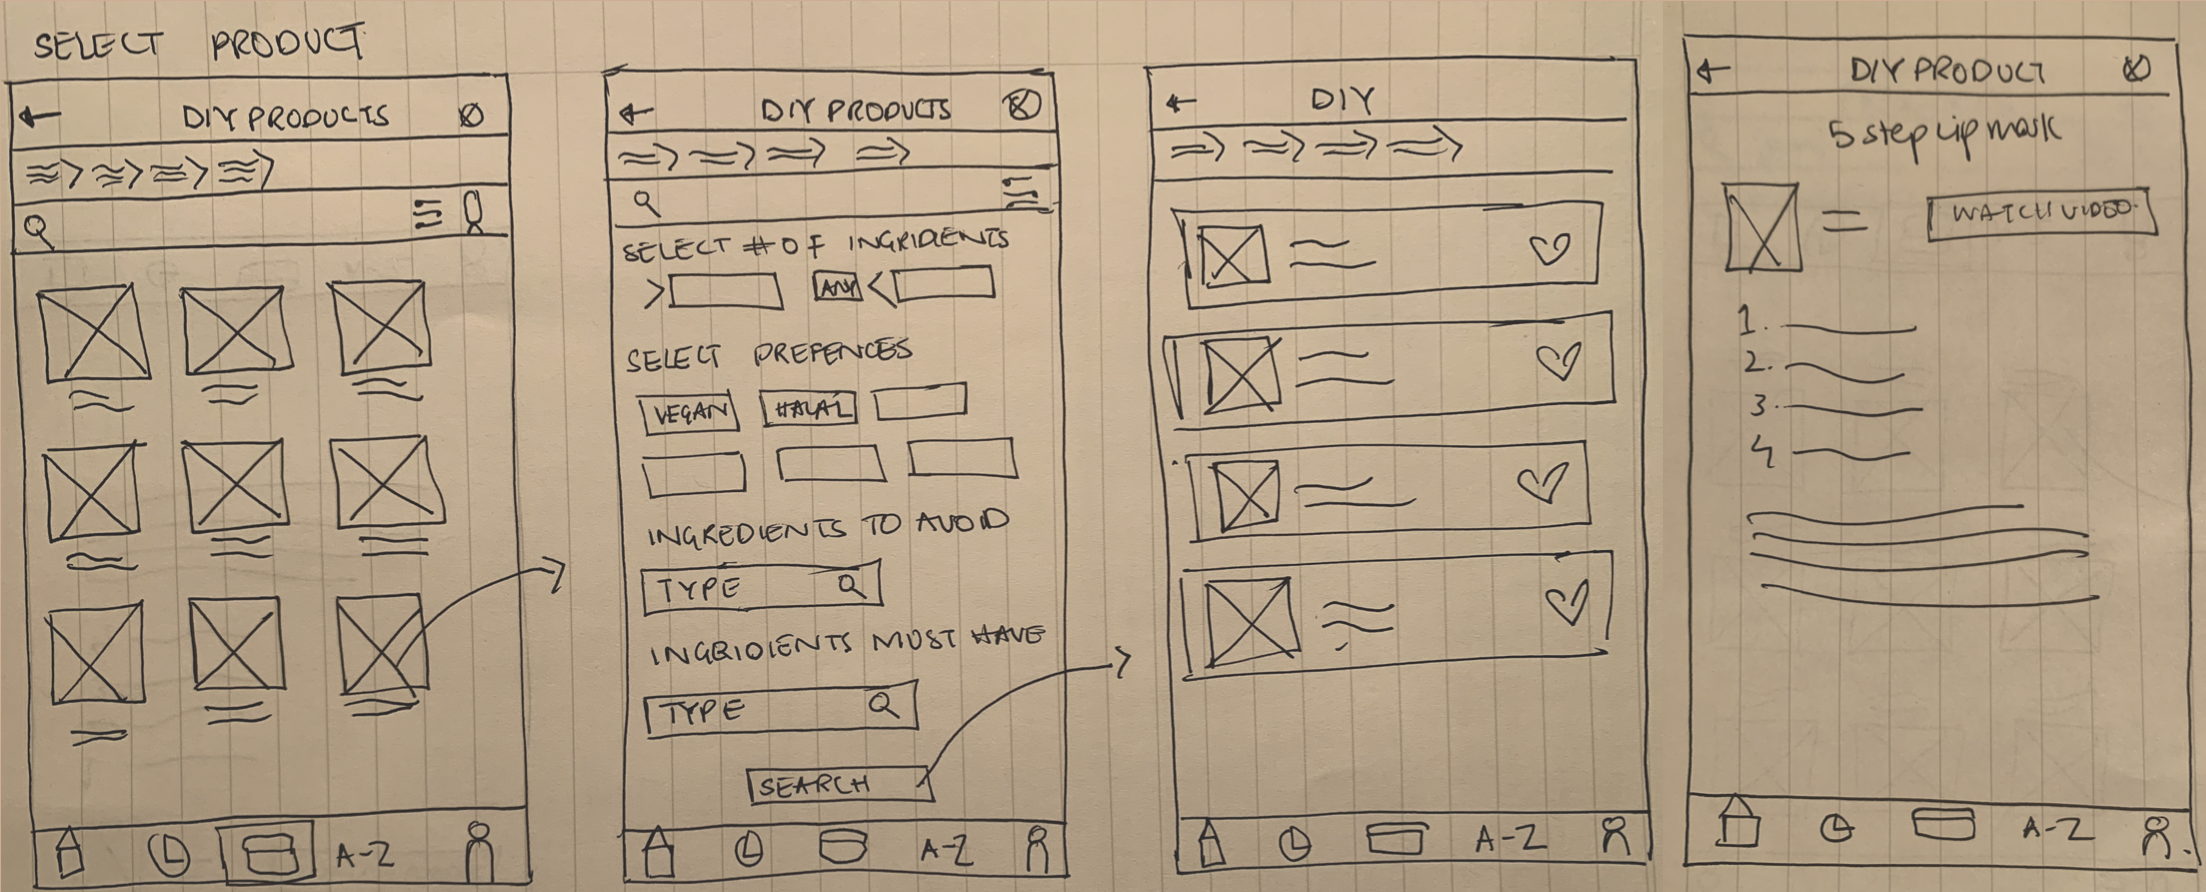 SELECT PRODUCT
DIY PRODUCTS
A-Z
DIY PRODUCTS
SELECT # OF INGRIDIENTS
> ANY <
SELECT PREFENCES
VEGAN HALAL
INGREDIENTS TO AVOID
TYPE
INGRIDIENTS MUST HAVE
TYPE
SEARCH
A-Z
DIY
A-Z
DIY PRODUCT
5 step Lip mask
WATCH VIDEO
1.
2.
3.
4
A-Z